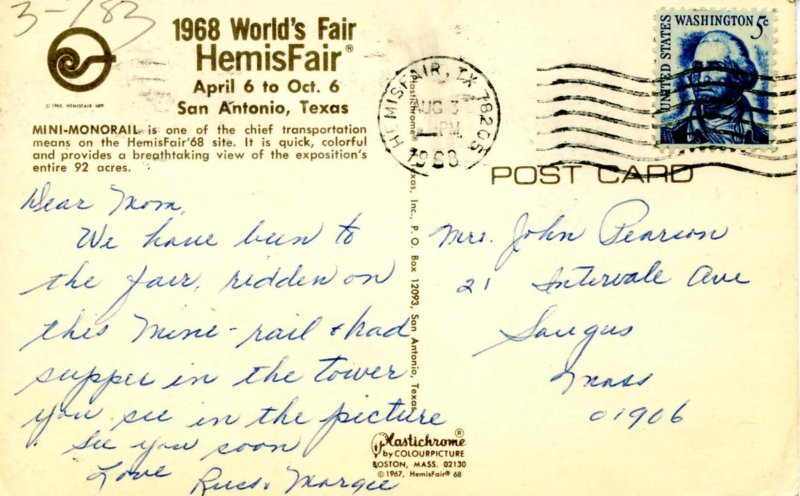 3-783
1968 World's Fair
HemisFair®
April 6 to Oct. 6
San Antonio, Texas
© 1965, HEMISFAIR '68®
MINI-MONORAIL is one of the chief transportation
means on the HemisFair'68 site. It is quick, colorful
and provides a breathtaking view of the exposition's
entire 92 acres.
HEMISFAIR, TX 78205
AUG 3
PM
1968
UNITED STATES
WASHINGTON 5c
POST CARD
Dear Mom,
We have been to
the fair, ridden on
this mine-rail & had
supper in the tower
you see in the picture
See you soon
Love
Russ & Margie
Plastichrome Texas, Inc., P. O. Box 12093, San Antonio, Texas
Mrs. John Pearson
21 Intervale Ave
Saugus
Mass
01906
Plastichrome®
by COLOURPICTURE
BOSTON, MASS. 02130
© 1967, HemisFair® 68